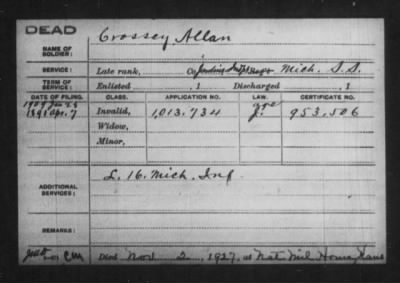 DEAD
NAME OF SOLDIER: Crossey, Allan
SERVICE: Late rank, Co Mich. S.S.
TERM OF SERVICE: Enlisted , 1 Discharged , 1
DATE OF FILING. CLASS. APPLICATION NO. LAW. CERTIFICATE NO.
1898 Apr. 7 Invalid, 1,013.734 953,506
Widow,
Minor,
ADDITIONAL SERVICES: L. 16. Mich. Inf
REMARKS:
Died Nov. 2, 1927, at Nat Mil Home, Kans